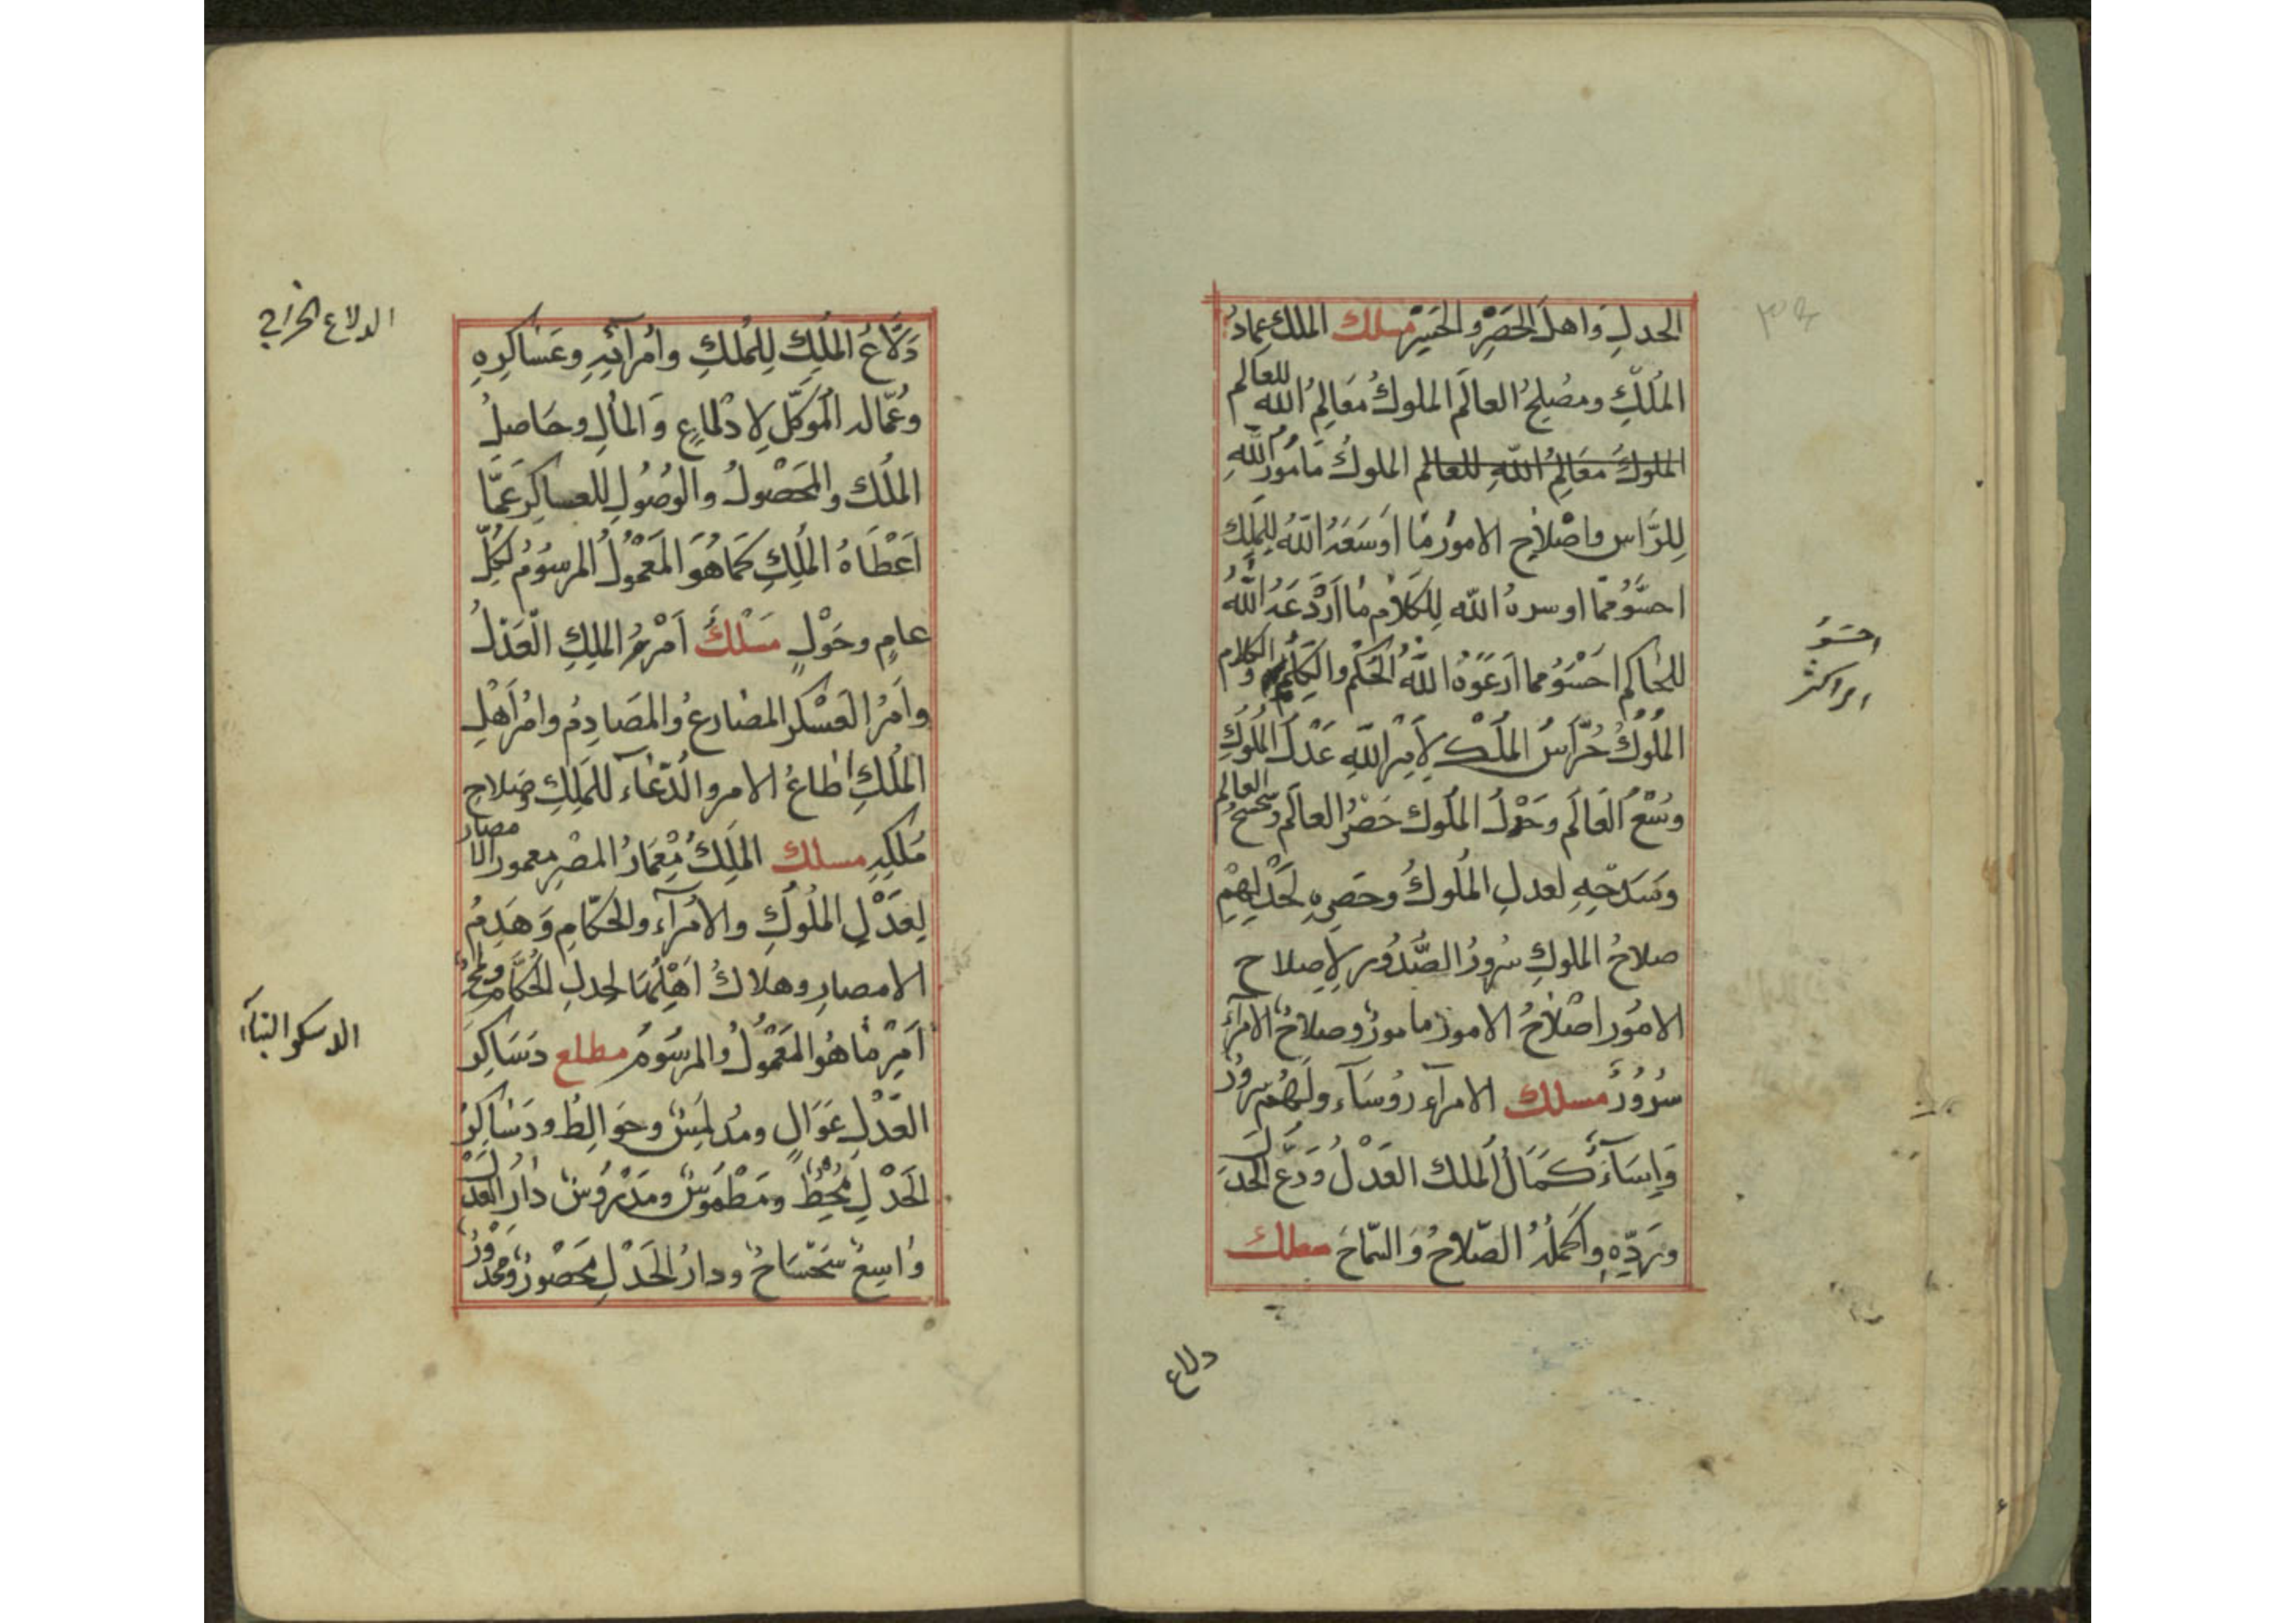 الحدلِ وَاهلَ الحَصْرِ والحَسِيْرِ مسلك الملك عِمَادُ
المُلكِ ومصْلِحُ العالَم الملوكُ مَعَالِمُ الله للعالم
الملوكُ معَالِمُ اللهِ للعالم الملوكُ مَأمُورُ اللهِ
لِلرَّاس واصْلَاحِ الامورْ مَا اَوسَعَهُ اللهُ لِلمَلِك
احسَوُ ممّا اوسره الله لِلكَلَام مَا اَرْدَعَهُ اللهُ
للحَاكم احْسَوُ مما ارعَوَهُ اللهُ الحَكَمُ والكَلِمُ وَالكلام
المُلُوكُ حُرَّاسُ المُلْك لِاَمِرْ اللهِ عَدْلُ المُلُوكِ
وُسْعُ العَالَم وَحَدْلُ المُلُوك حَصْرُ العَالَم وسَحْسَحُ العالم
وَسَدَحِهِ لعدلِ المُلُوكُ وحَصرِهِ لحَدْلِهِمْ
صلاحُ الملوكِ سُرورُ الصُّدُورِ لِاِصلاح
الامُور اصْلَاحُ الامور مامورٌ وصلاحُ الامرآءِ
سُرُورٌ مسلك الامرآءِ رُوسَآء ولَهُم سُرورٌ
وَاِسَآءٌ كَمَالُ المُلك العَدْلُ وَدَعُ الحَدَلَ
وَرَدِّهِ وَاكمَلُهُ الصَّلَاحُ وَالسَّمَاحَ مسلك
دلاع
احسَوُ
اى اكثر
دَلَّاعُ المُلِكِ لِلمُلكِ وأُمرآئِهِ وعَسَاكِرِهِ
وعُمّاله المُوَكَّل لِادْلَاعٍ وَالمَالِ وحَاصِلِ
المُلك والمَحْصُولُ والوُصُولِ للعساكِرِ عَمّا
اَعْطَاهُ المُلِكِ كَمَا هُوَ المَعْمُولُ المرسُومُ لكُلِّ
عامٍ وحَوْلٍ مَسْلَكٌ اَمْرُ المَلِكِ العَدْلُ
وأَمرُ العَسْكَرِ المصَارعُ والمصَادِمُ وامُر اَهْلِ
المُلكِ اطَاعُ الامرِ والدُّعَآء للمَلِكِ وصَلاحِ
مُلكِهِ مسلك المَلِكُ مِعْمَارُ المصْرِ معمور الامصار
لِعَدْلِ المُلُوكِ والاُمَرآء والحُكّامِ وَهَدِمُ
الامصارِ وهلاكُ اَهْلِهَا لِحدلِ الحُكَّامِ
اَمِرْ مَا هُو المَعْمُولُ والمرسُومُ مطلع دَسَاكِرُ
العَدْلِ عَوَالٍ ومُدلَمِسٌ وحَوالِطُ ودَسَاكِرُ
الحَدْلِ مُحِطٌ ومَطْمُوسٌ ومَدْرُوسٌ دَارُ العَدْلِ
وَاسِعٌ سَحْسَاحٌ ودارُ الحَدْلِ مَحْصُورٌ ومَحْدُورٌ
الدلاع الخراجي
الدسكر البنآء